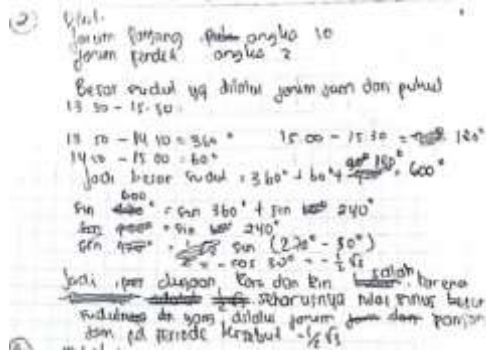 2)
Jarum Panjang angka 10
Jarum Pendek angka 2
Besar sudut yg dilalui jarum jam dari pukul
13.50 - 15.30.
13.50 - 14.50 = 360° 15.00 - 15.30 = 180°
14.50 - 15.00 = 60°
Jadi besar sudut = 360° + 60° + 180° = 600°
sin 600° = sin 360° + sin 240°
= sin 240°
sin = sin (270° - 30°)
= - cos 30° = - 1/2 √3
Jadi, dugaan, dan salah, karena
seharusnya nilai sinus besar
sudut yang dilalui jarum panjang
pd periode tersebut - 1/2 √3